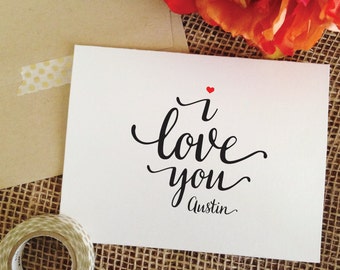 i
love
you
Austin